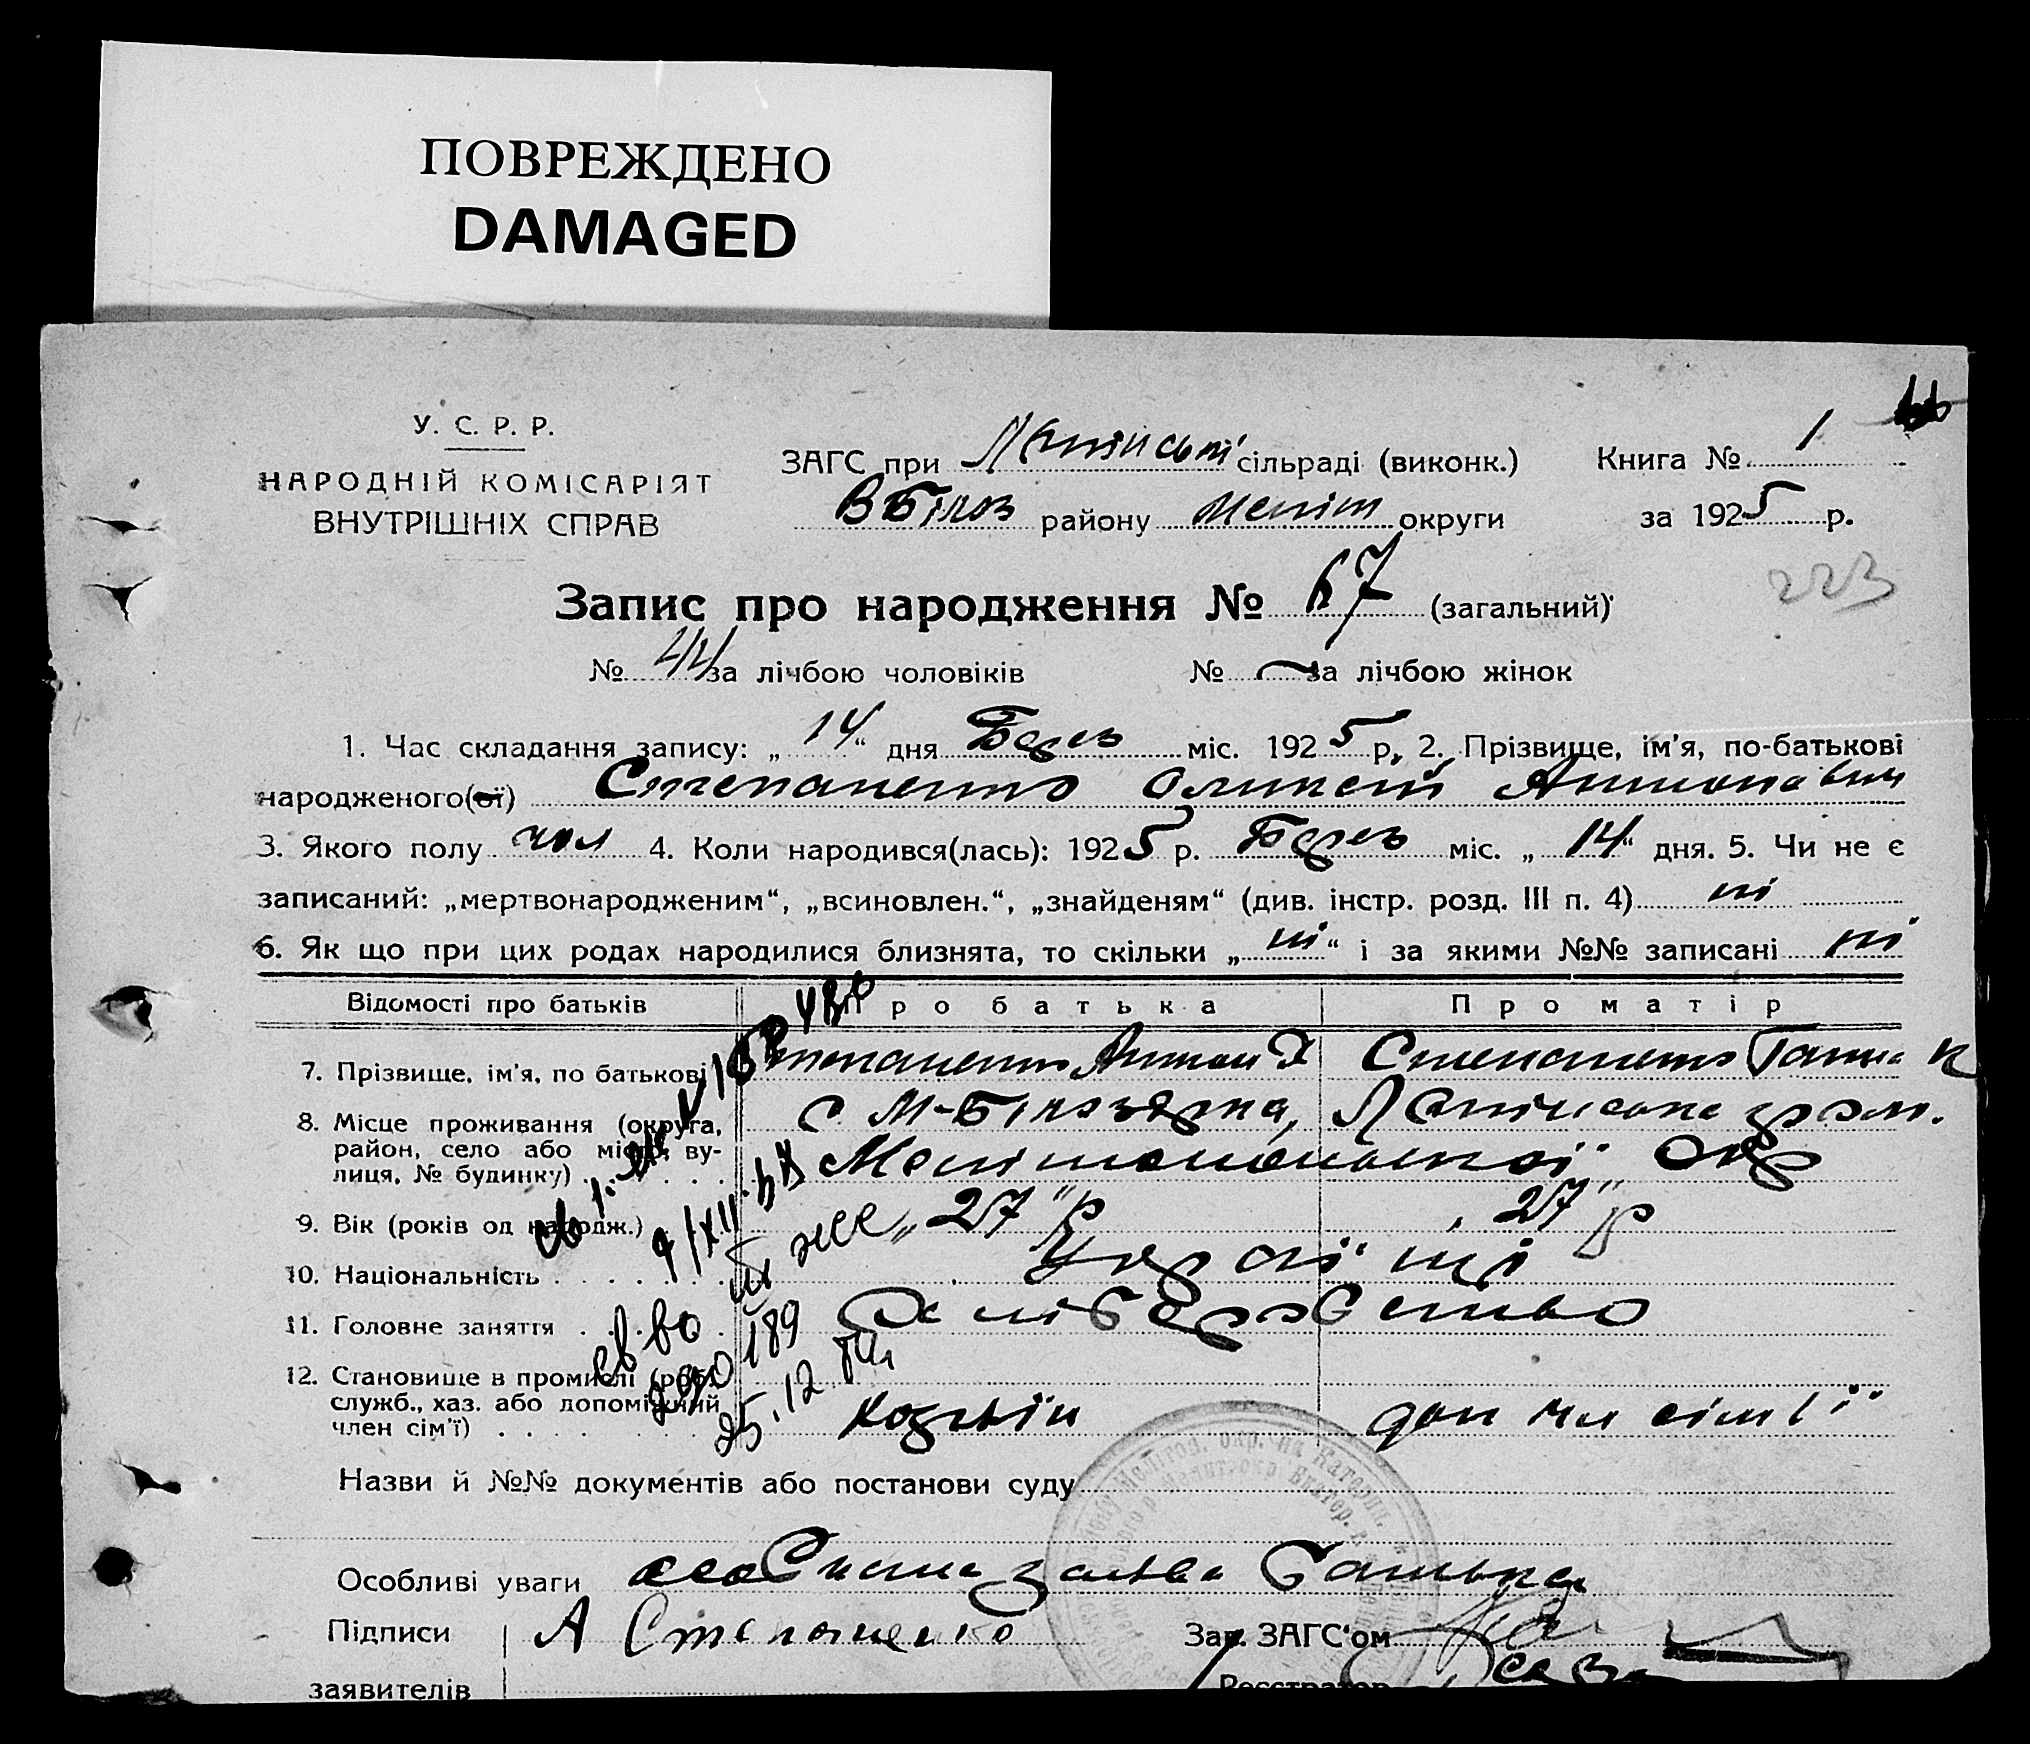 ПОВРЕЖДЕНО
DAMAGED
У. С. Р. Р.
НАРОДНІЙ КОМІСАРІЯТ
ВНУТРІШНІХ СПРАВ
ЗАГС при сільраді (виконк.) Книга № 1
ВБілоз району Меліт округи за 1925 р.
223
Запис про народження № 67 (загальний)
№ 44 за лічбою чоловіків № — за лічбою жінок
1. Час складання запису: „14“ дня Берез міс. 1925 р, 2. Прізвище, ім'я, по-батькові
народженого(ої) Степаненко Олексій Антонович
3. Якого полу чол 4. Коли народився(лась): 1925 р. Берез міс. „14“ дня. 5. Чи не є
записаний: „мертвонародженим“, „всиновлен.“, „знайденям“ (див. інстр. розд. III п. 4) ні
6. Як що при цих родах народилися близнята, то скільки „ні“ і за якими №№ записані ні
Відомості про батьків Про батька Про матір
7. Прізвище, ім'я, по батькові Степаненко Антон Степаненко Ганна К
8. Місце проживання (округа, с. М-Білозерка, гром.
район, село або місто, ву-
лиця, № будинку) Мелітопольської Окр
9. Вік (років од народж.) „27“ р „27“ р
10. Національність Українці
11. Головне заняття
12. Становище в промислі (роб.
служб., хаз. або допоміжний
член сім'ї) хозяїн доп чл сімї
Назви й №№ документів або постанови суду
Особливі уваги заява батька
Підписи А Степаненко Зав. ЗАГС'ом
заявителів Реєстратор